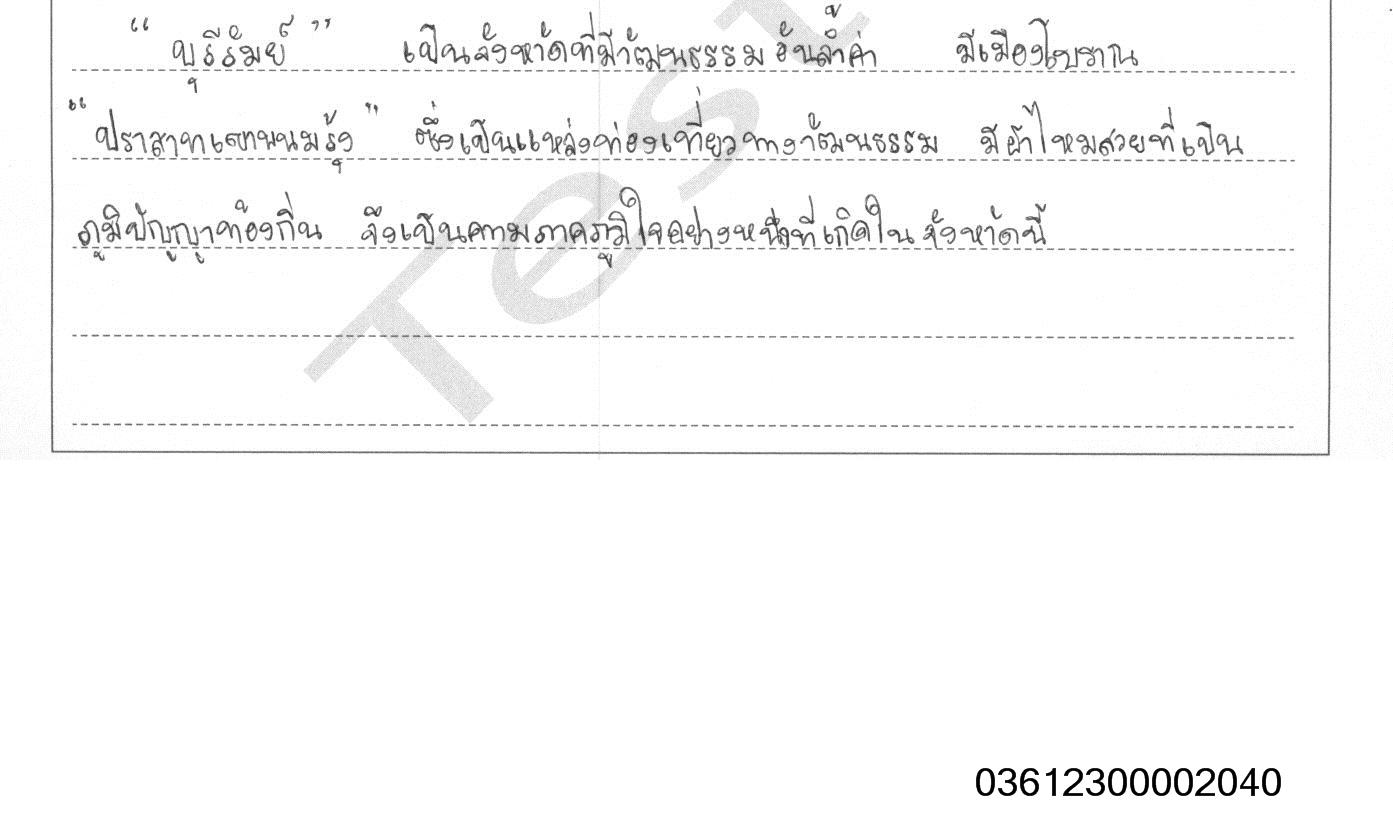 “ บุรีรัมย์ ” เป็นจังหวัดที่มีวัฒนธรรม อันล้ำค่า มีเมืองโบราณ
“ ปราสาทเขาพนมรุ้ง ” ซึ่งเป็นแหล่งท่องเที่ยวทางวัฒนธรรม มีผ้าไหมสวยที่เป็น
ภูมิปัญญาท้องถิ่น จึงเป็นความภาคภูมิใจอย่างหนึ่งที่เกิดใน จังหวัดนี้
Test
03612300002040